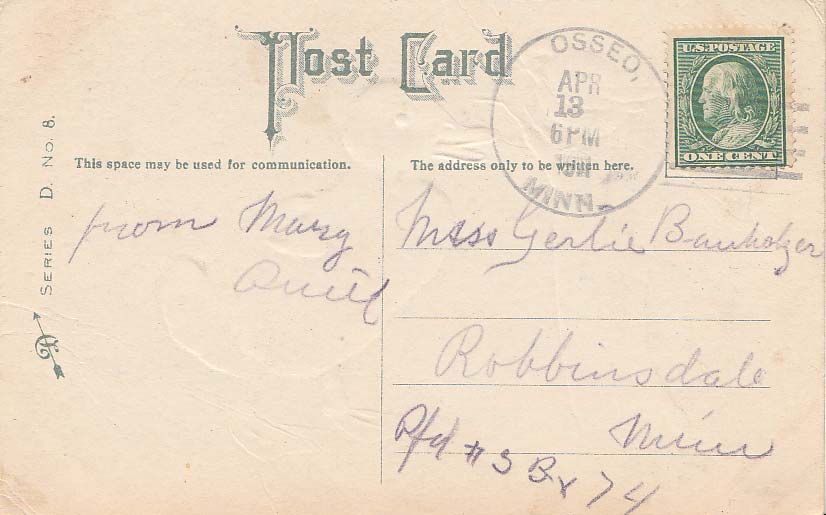 Post Card
OSSEO,
APR
13
6 PM
MINN.
U.S. POSTAGE
ONE CENT
SERIES D. No. 8.
This space may be used for communication.
The address only to be written here.
from Mary
Miss Gertie Bauholzer
Robbinsdale
Minn
Rfd #3 Bx 74